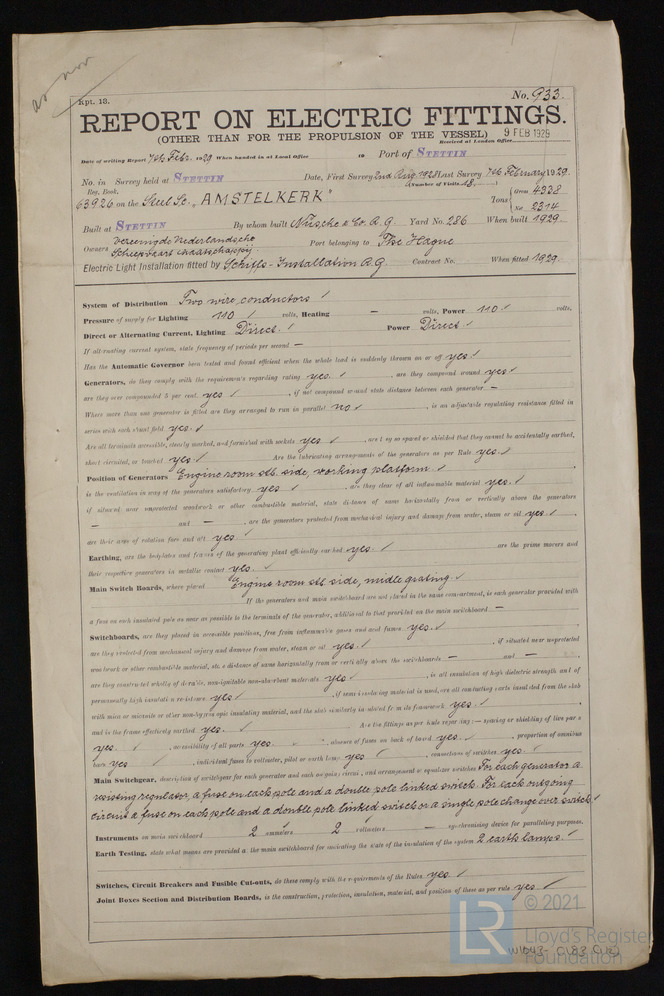 as now
Rpt. 13.
No. 933.
REPORT ON ELECTRIC FITTINGS.
(OTHER THAN FOR THE PROPULSION OF THE VESSEL)
9 FEB 1929
Received at London Office
Date of writing Report 7th Febr. 1929 When handed in at Local Office 19 Port of STETTIN
No. in Survey held at STETTIN Date, First Survey 2nd Aug. 1928 Last Survey 7th February 1929.
Reg. Book. (Number of Visits 18.)
63926 on the Steel Sc. "AMSTELKERK" Tons { Gross 4338
Net 2314
Built at STETTIN By whom built Nüscke & Co. A.G. Yard No. 286 When built 1929.
Owners Vereenigde Nederlandsche Scheepvaart Maatschappij Port belonging to The Hague
Electric Light Installation fitted by Schiffs-Installation A.G. Contract No. When fitted 1929.
System of Distribution Two wire, conductors ✓
Pressure of supply for Lighting 110 ✓ volts, Heating — volts, Power 110 ✓ volts.
Direct or Alternating Current, Lighting Direct. ✓ Power Direct ✓
If alternating current, state frequency of periods per second —
Has the Automatic Governor been tested and found efficient when the whole load is suddenly thrown on or off yes ✓
Generators, do they comply with the requirements regarding rating yes. ✓ , are they compound wound yes ✓
are they over compounded 5 per cent. yes ✓ , if not compound wound state distance between each generator —
Where more than one generator is fitted are they arranged to run in parallel no ✓ , is an adjustable regulating resistance fitted in
series with each shunt field yes. ✓
Are all terminals accessible, clearly marked, and furnished with sockets yes ✓ , are they so spaced or shielded that they cannot be accidentally earthed,
short circuited, or touched yes ✓ Are the lubricating arrangements of the generators as per Rule yes. ✓
Position of Generators Engine room stb. side, working platform. ✓
is the ventilation in way of the generators satisfactory yes ✓ , are they clear of all inflammable material yes. ✓
if situated near unprotected woodwork or other combustible material, state distance of same horizontally from or vertically above the generators
— and — , are the generators protected from mechanical injury and damage from water, steam or oil yes ✓
are their axes of rotation fore and aft yes. ✓
Earthing, are the bedplates and frames of the generating plant efficiently earthed yes. ✓ are the prime movers and
their respective generators in metallic contact yes. ✓
Main Switch Boards, where placed Engine room stb. side, middle grating. ✓
If the generators and main switchboard are not placed in the same compartment, is each generator provided with
a fuse on each insulated pole as near as possible to the terminals of the generator, additional to that provided on the main switchboard —
Switchboards, are they placed in accessible positions, free from inflammable gases and acid fumes yes. ✓
are they protected from mechanical injury and damage from water, steam or oil yes. ✓ , if situated near unprotected
woodwork or other combustible material, state distance of same horizontally from or vertically above the switchboards — and —
are they constructed wholly of durable, non-ignitable non-absorbent materials yes ✓ , is all insulation of high dielectric strength and of
permanently high insulation resistance yes ✓ , if semi-insulating material is used, are all conducting parts insulated from the slab
with mica or micanite or other non-hygroscopic insulating material, and the slab similarly insulated from its framework yes. ✓
and is the frame effectively earthed yes. ✓ Are the fittings as per Rule regarding :— spacing or shielding of live parts
yes. ✓ , accessibility of all parts yes. ✓ , absence of fuses on back of board yes. ✓ , proportion of omnibus
bars yes ✓ , individual fuses to voltmeter, pilot or earth lamp yes ✓ , connections of switches yes. ✓
Main Switchgear, description of switchgear for each generator and each outgoing circuit, and arrangement of equalizer switches For each generator a
resisting regulator, a fuse on each pole and a double pole linked switch. For each outgoing
circuit a fuse on each pole and a double pole linked switch or a single pole change over switch. ✓
Instruments on main switchboard 2 ammeters 2 voltmeters — synchronising device for paralleling purposes.
Earth Testing, state what means are provided at the main switchboard for indicating the state of the insulation of the system 2 earth lamps. ✓
Switches, Circuit Breakers and Fusible Cut-outs, do these comply with the requirements of the Rules yes. ✓
Joint Boxes Section and Distribution Boards, is the construction, protection, insulation, material, and position of these as per rule yes ✓
© 2021
LR
Lloyd's Register
Foundation